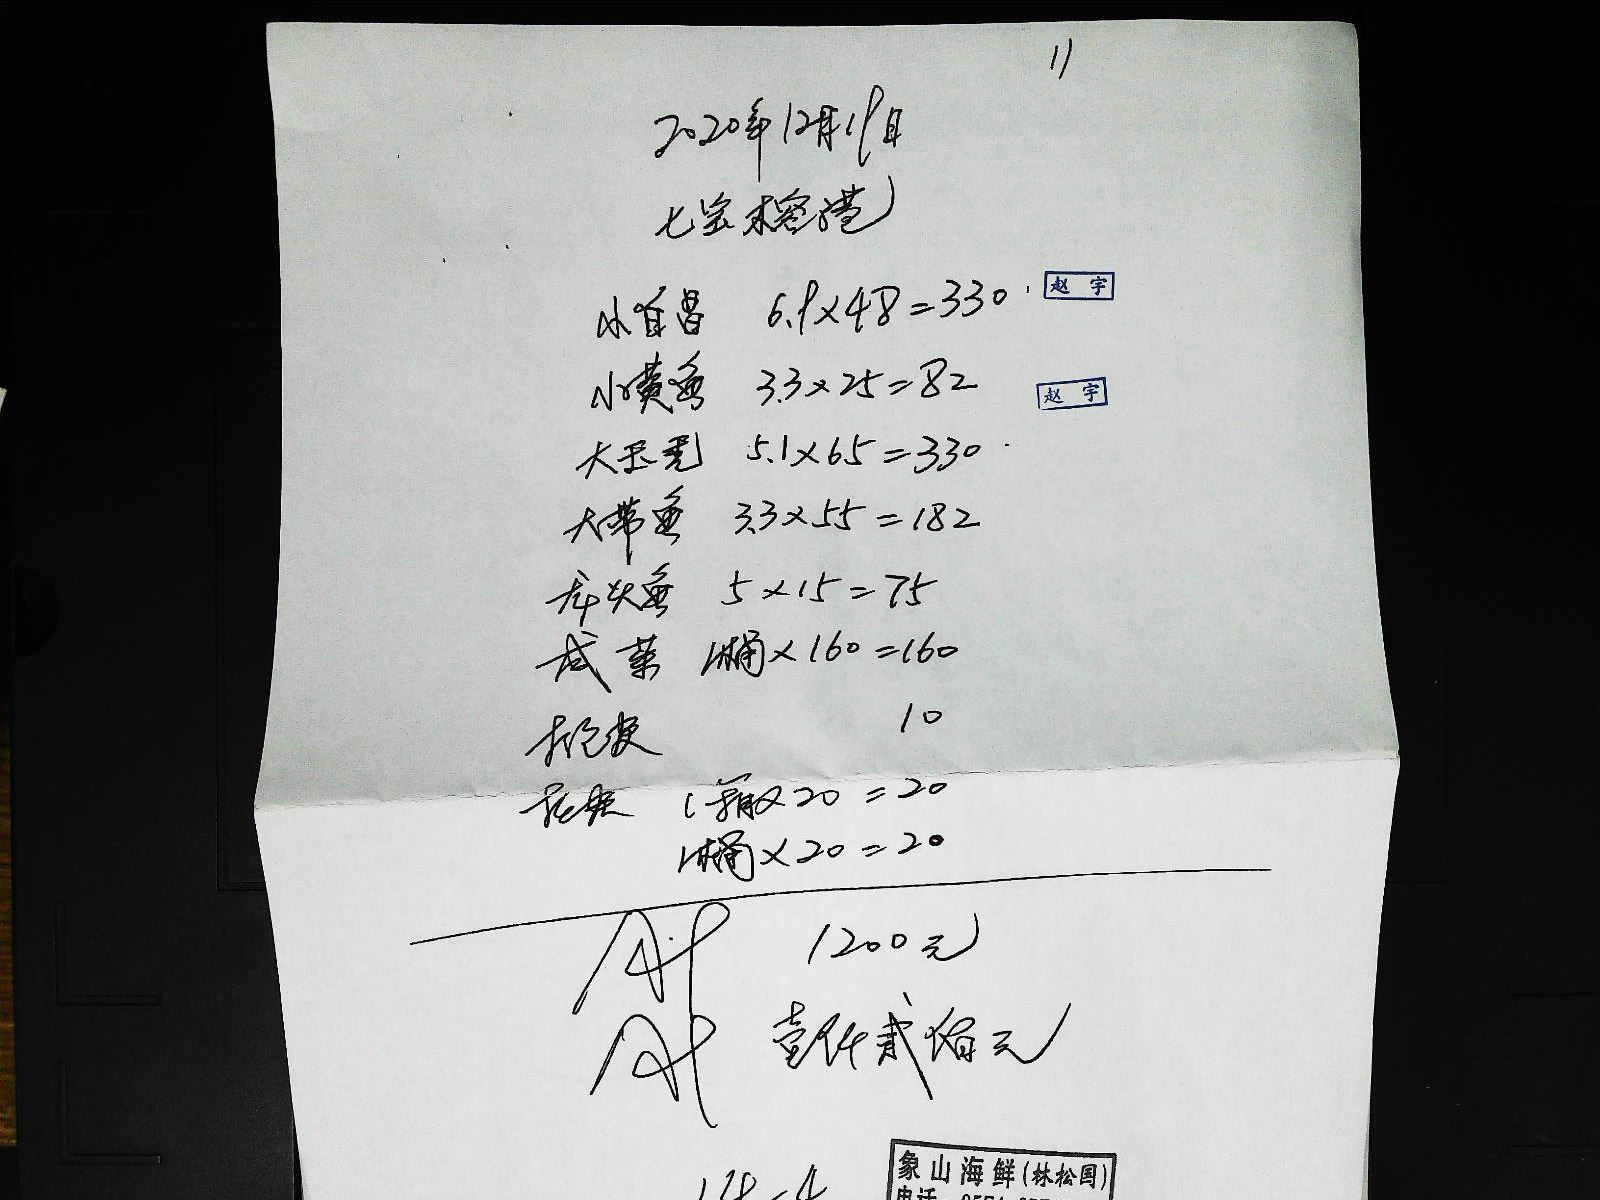 11
2020年12月19日
七宝榕港
小白昌 6.9×48=330
赵宇
小黄鱼 3.3×25=82
赵宇
大玉秃 5.1×65=330
大带鱼 3.3×55=182
龙头鱼 5×15=75
咸菜 1桶×160=160
10
1箱×20=20
1桶×20=20
1200元
壹仟贰佰元
象山海鲜(林松国)
电话